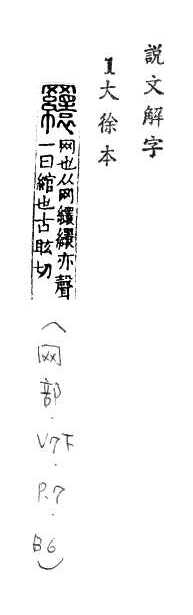 説文解字
1大徐本
网也从网繯繯亦聲
一曰綰也古眩切
(网部·V7下·P.7·B6)